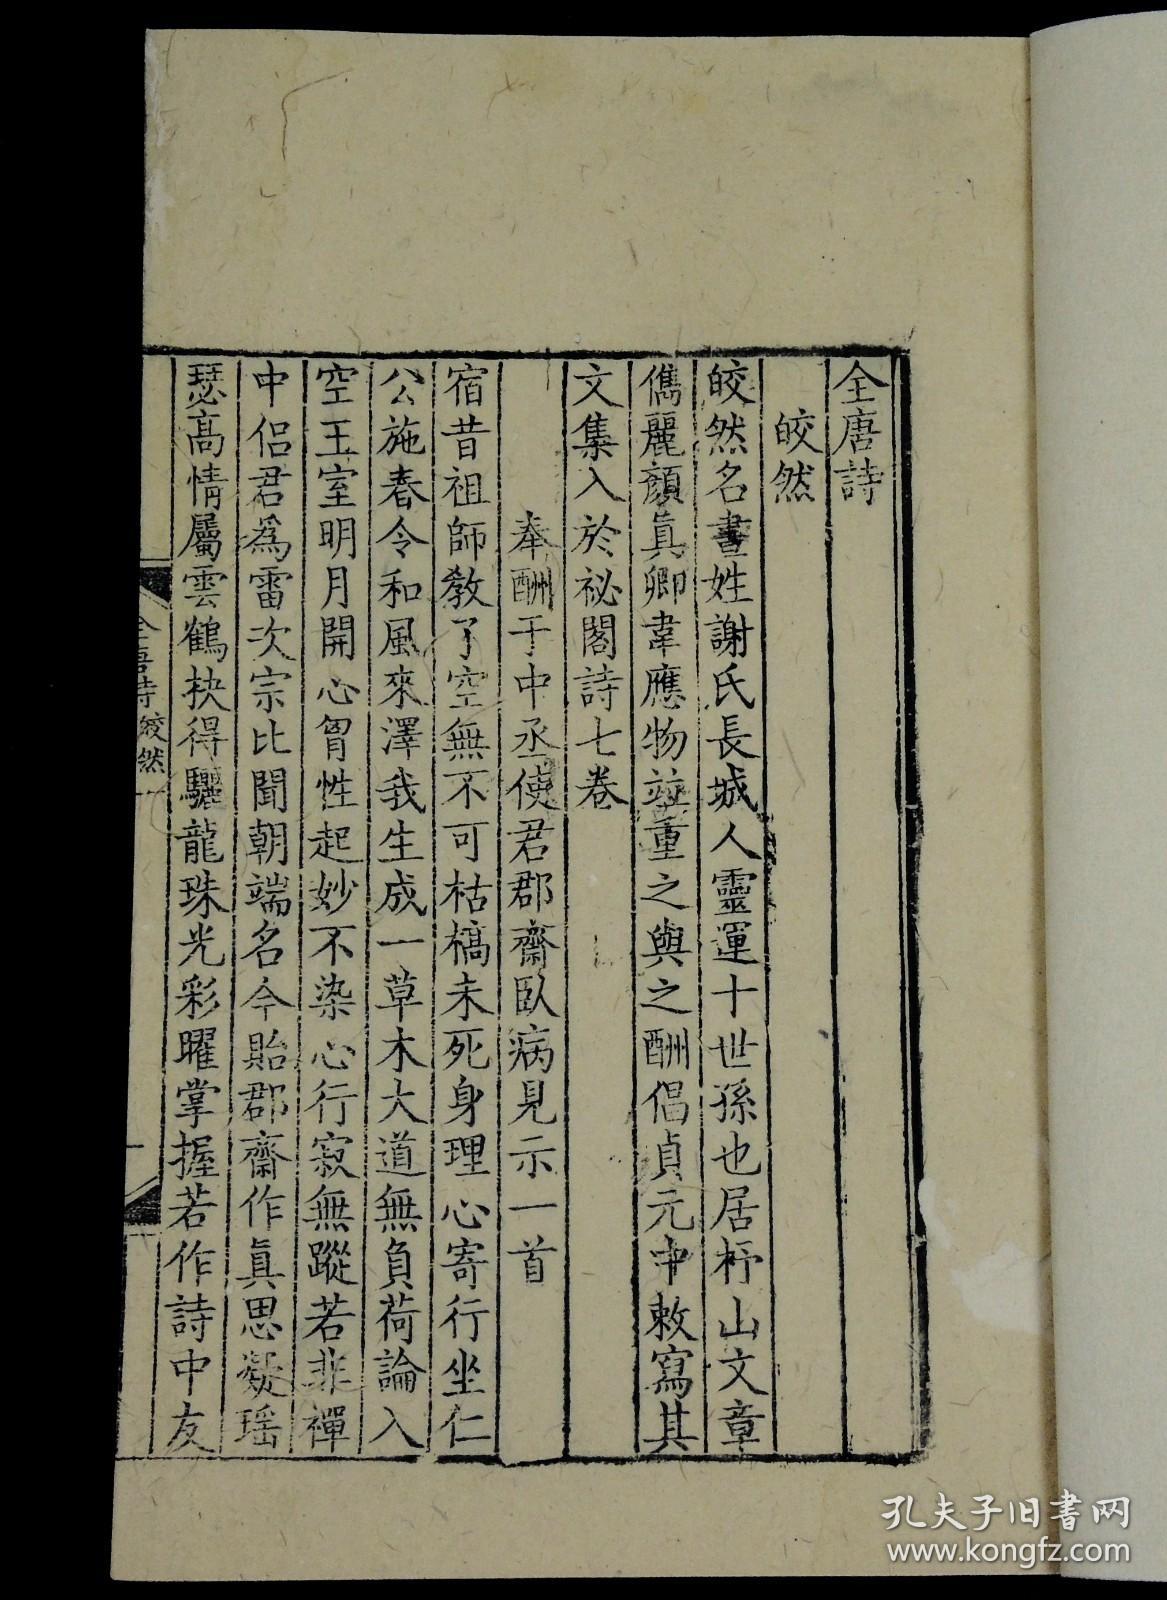 全唐詩
皎然
皎然名晝姓謝氏長城人靈運十世孫也居杼山文章
儁麗顏眞卿韋應物竝重之與之酬倡貞元中敕寫其
文集入於祕閣詩七卷
奉酬于中丞使君郡齋臥病見示一首
宿昔祖師教了空無不可枯槁未死身理心寄行坐仁
公施春令和風來澤我生成一草木大道無負荷論入
空王室明月開心胷性起妙不染心行寂無蹤若非禪
中侶君爲雷次宗比聞朝端名今貽郡齋作眞思凝瑶
瑟高情屬雲鶴抉得驪龍珠光彩曜掌握若作詩中友
全唐詩 皎然 一
孔夫子旧书网
www.kongfz.com